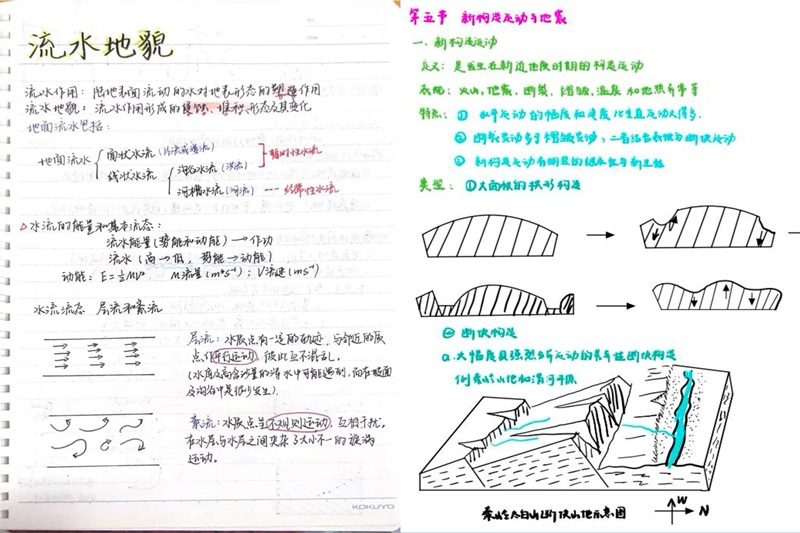 流水地貌
流水作用：陆地表面流动的水对地表形态的塑造作用
流水地貌：流水作用形成的侵蚀、堆积形态及其变化
地面流水包括：
地面流水
面状水流（片流或漫流）
线状水流
沟谷水流（洪流）
河槽水流（河流）
暂时性水流
经常性水流
△水流的能量和基本流态：
流水能量（势能和动能）→作功
流水（高→低，势能→动能）
动能：E=½MV² M流量（m³s⁻¹）；V流速（ms⁻¹）
水流流态 层流和紊流
层流：水质点有一定的轨迹，与邻近的质
点作平行运动，彼此互不混乱。
（水库及高含沙量的浑水中可能遇到，而在坡面
及沟谷中是很少发生）
紊流：水质点呈不规则运动，互相干扰，
在水层与水层之间夹杂了大小不一的旋涡
运动。
KOKUYO
第五节 新构造运动与地震
一、新构造运动
定义：是发生在新近地质时期的构造运动
表现：火山，地震，断裂，褶皱，温泉和地热异常等
特点：① 水平运动的幅度和速度比垂直运动大得多.
② 断裂运动多于褶皱运动，二者结合表现为断块运动
③ 新构造运动有明显的继承性与新生性
类型：①大面积的拱形构造
② 断块构造
a.大幅度且强烈的差异性断块构造
例秦岭山地和渭河平原
秦岭太白山断块山地示意图
W
N